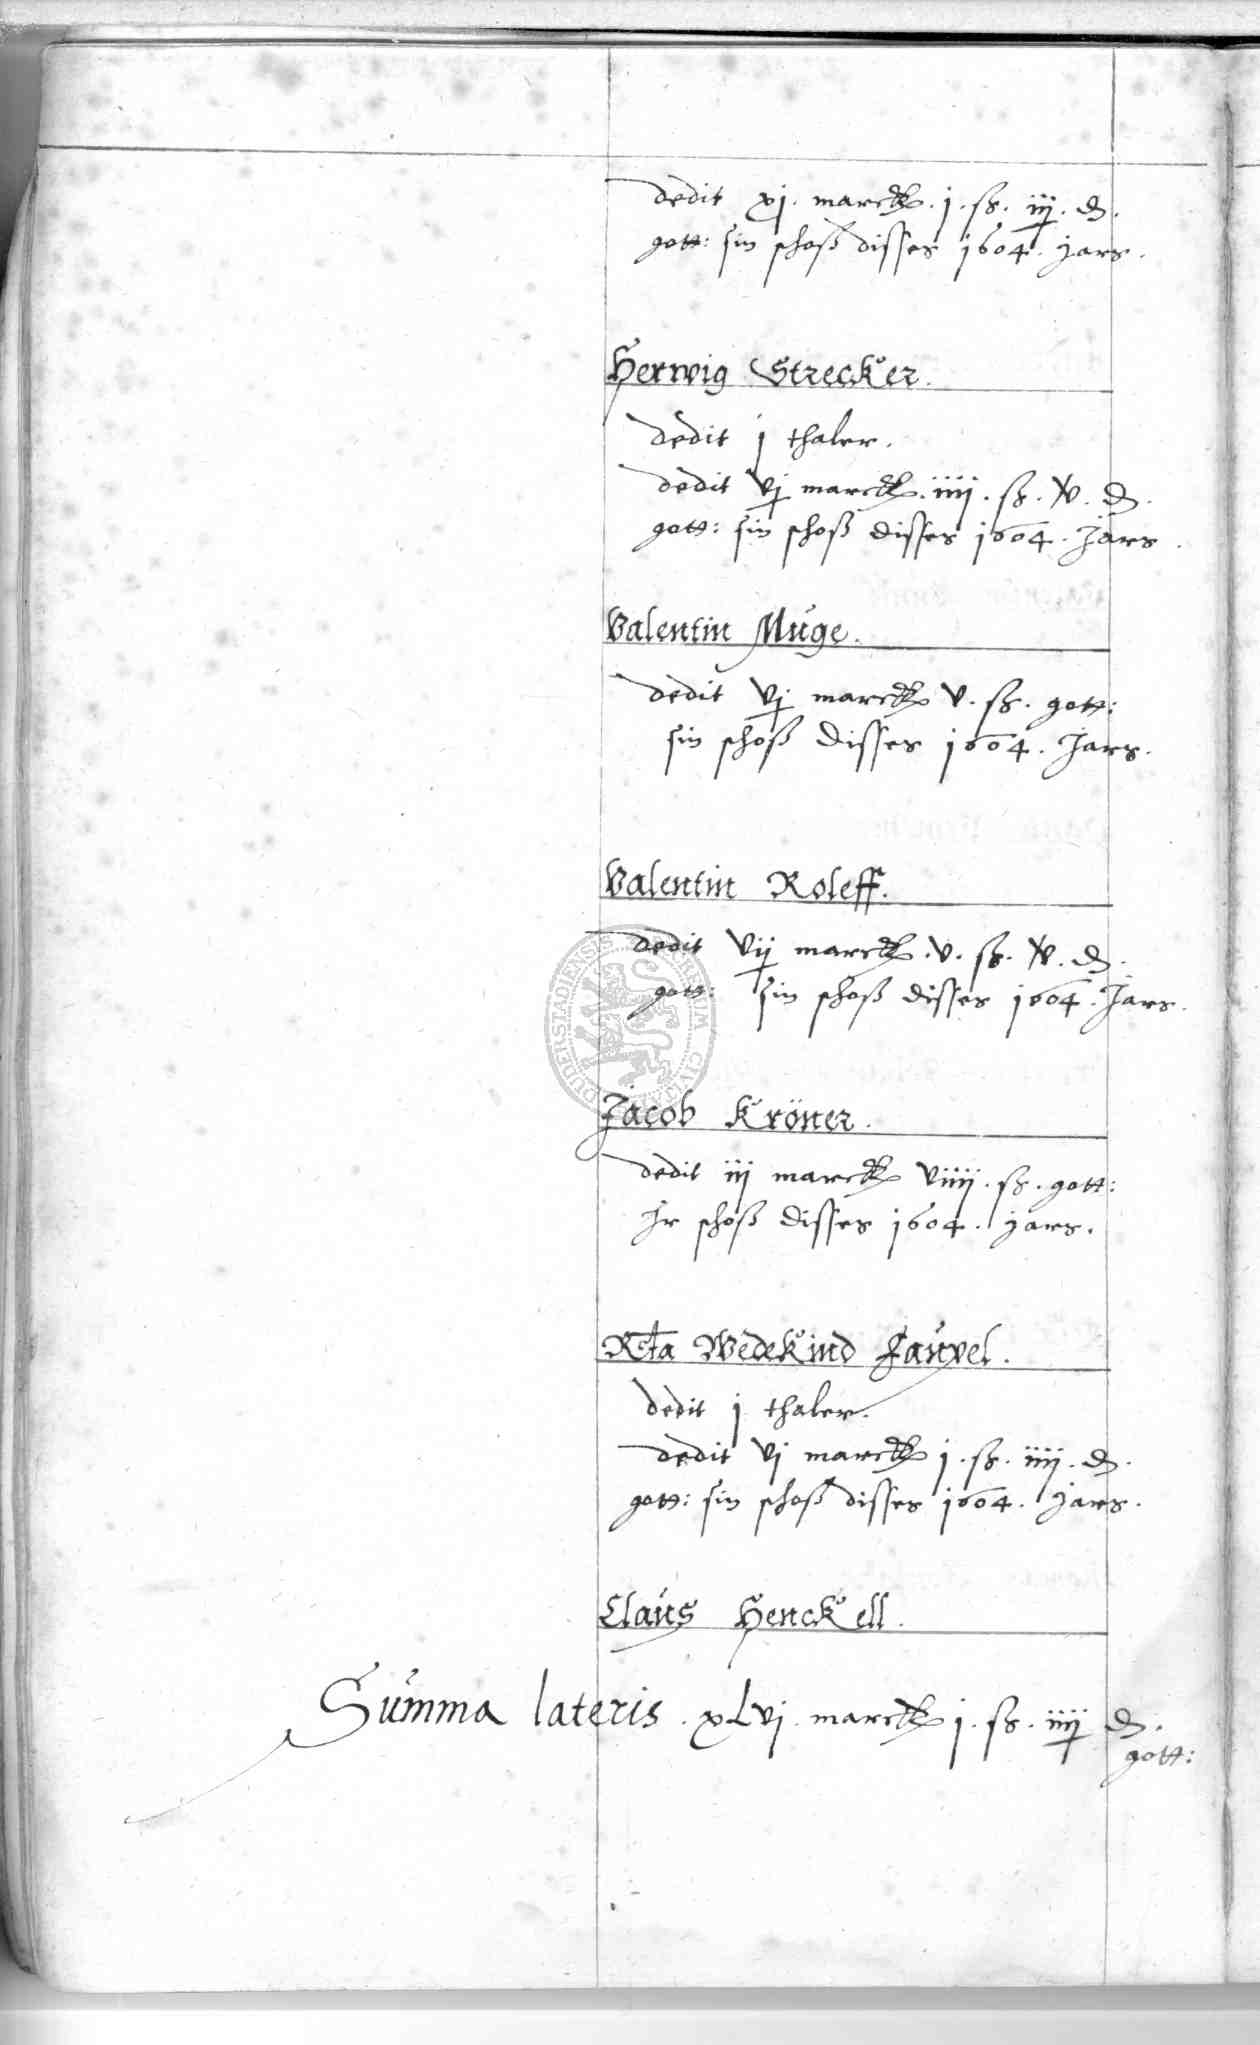 dedit xj. marck. j. ß. iij. d.
gott: sin schoß disses 1604. jars.
Herwig Strecker.
dedit j thaler.
dedit vj marck. iiij. ß. v. d.
gott: sin schoß disses 1604. Jars.
Valentin Müge.
dedit vj marck v. ß. gott:
sin schoß disses 1604. Jars.
Valentin Roleff.
dedit vij marck. v. ß. v. d.
gott: sin schoß disses 1604. Jars.
Jacob Kröner.
dedit iij marck viiij. ß. gott:
Jr schoß disses 1604. jars.
Rcta Wedekind
dedit j thaler.
dedit vj marck j. ß. iiij. d.
gott: sin schoß disses 1604. jars.
Claus Henckell.
Summa lateris. xLvj. marck j. ß. iiij d.
gott: